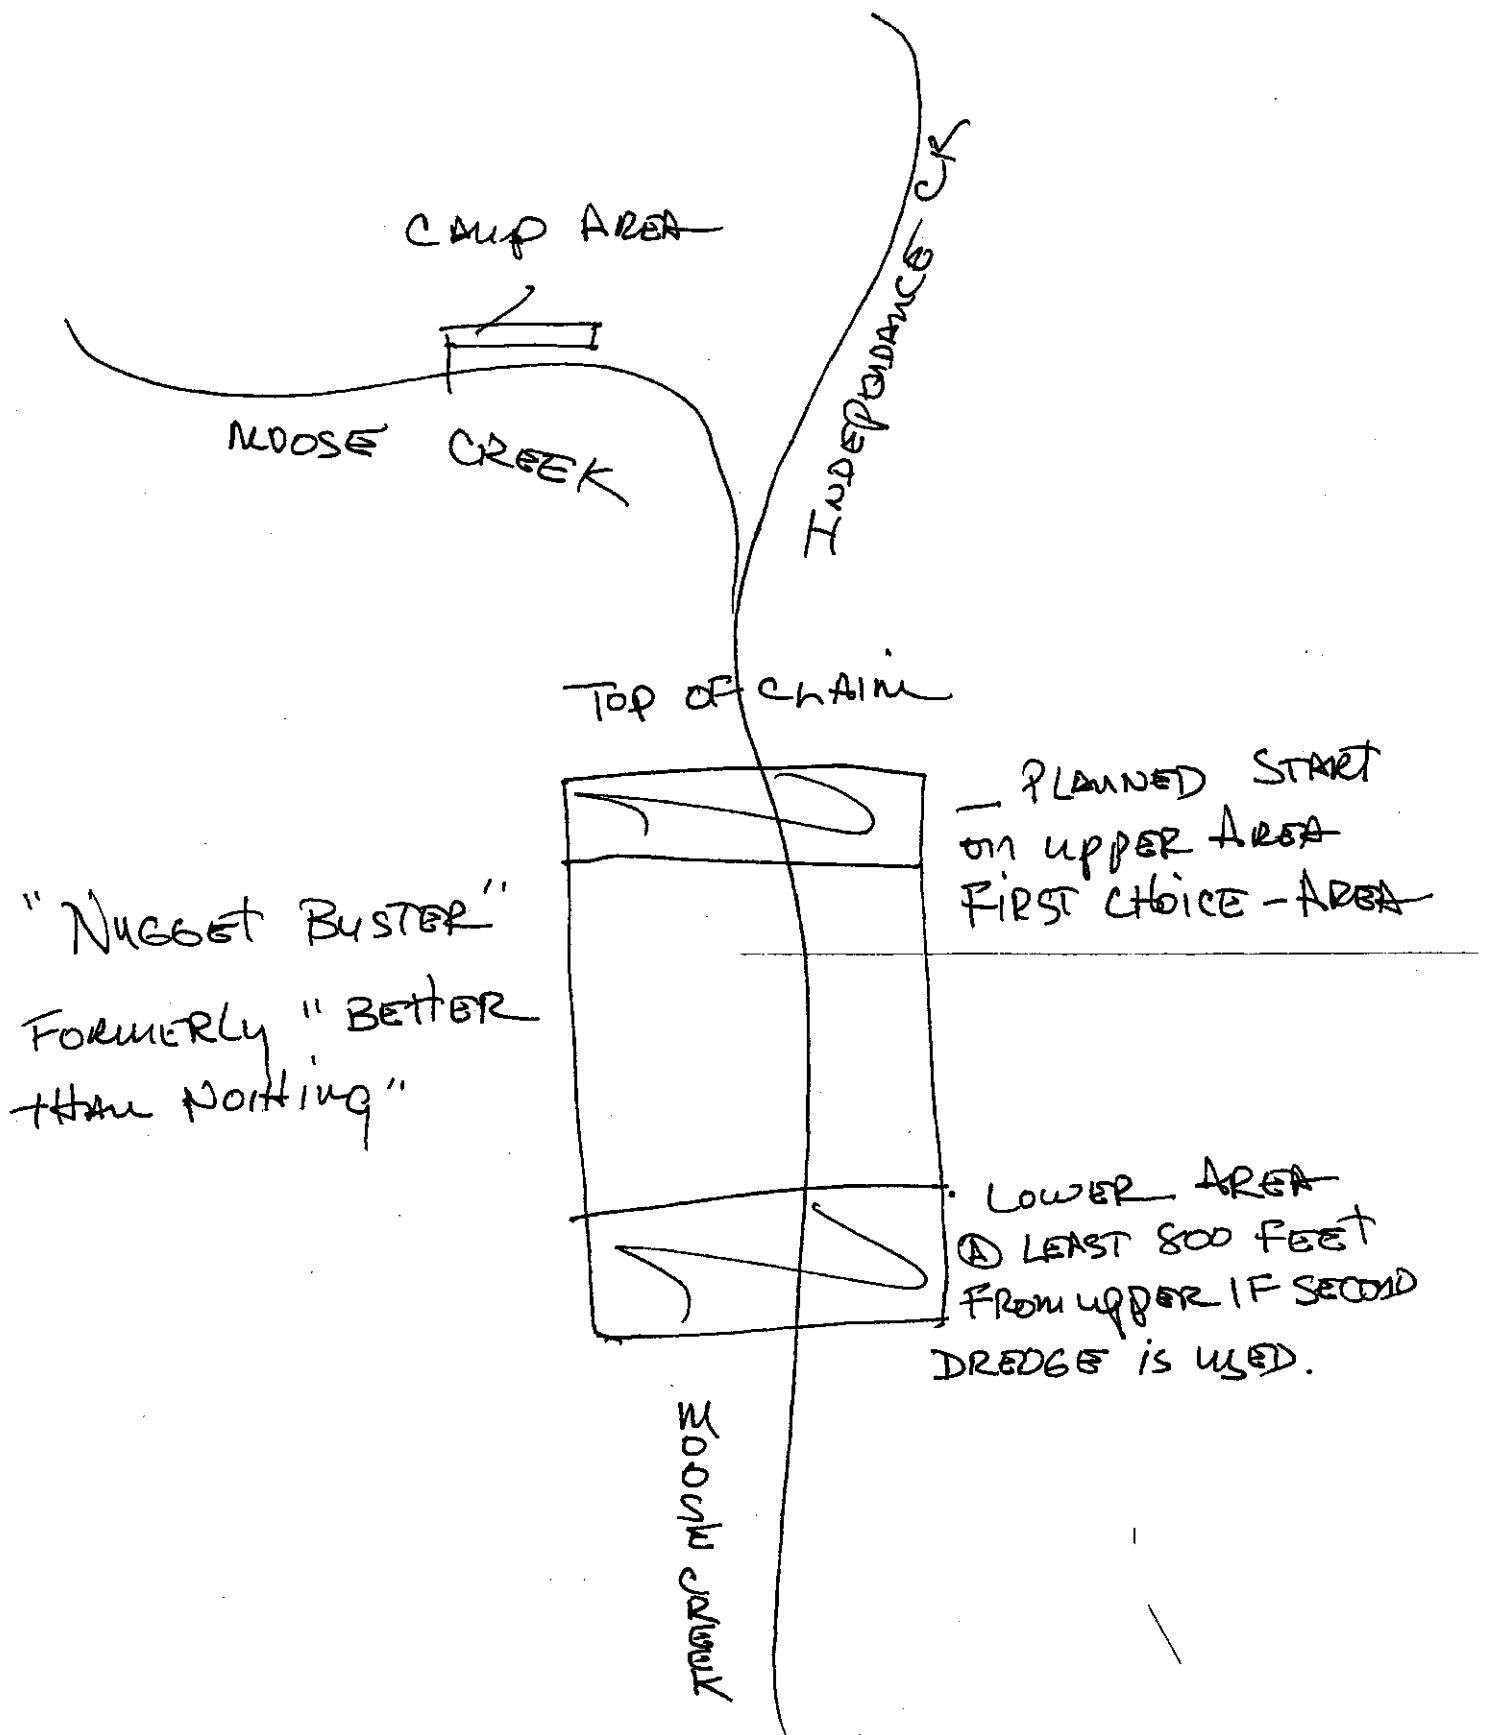 CAMP AREA
INDEPENDANCE CK
MOOSE CREEK
TOP OF CLAIM
PLANNED START
ON UPPER AREA
FIRST CHOICE - AREA
"NUGGET BUSTER"
FORMERLY "BETTER
THAN NOTHING"
LOWER AREA
Ⓐ LEAST 800 FEET
FROM UPPER IF SECOND
DREDGE IS USED.
MOOSE CREEK